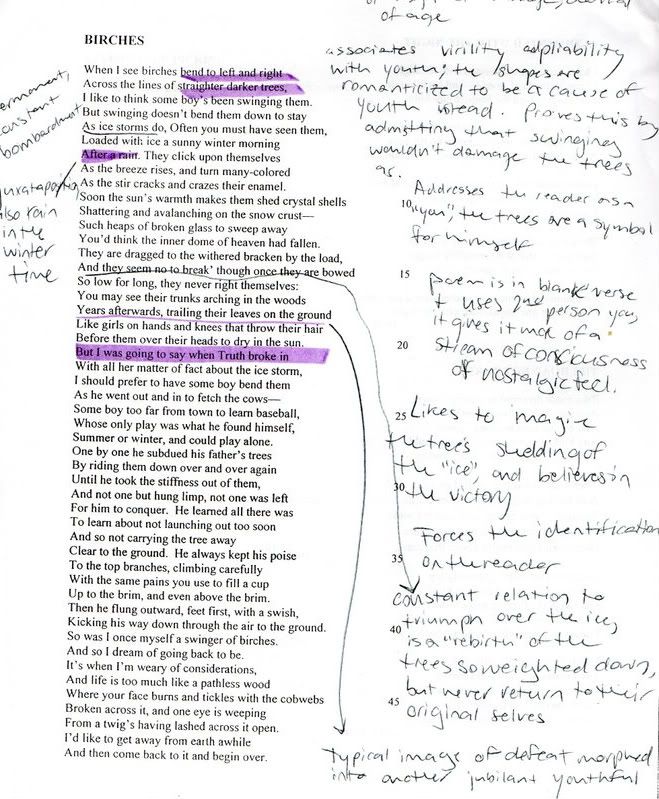 of age
BIRCHES
When I see birches bend to left and right
Across the lines of straighter darker trees,
I like to think some boy's been swinging them.
But swinging doesn't bend them down to stay
As ice storms do, Often you must have seen them,
Loaded with ice a sunny winter morning
After a rain. They click upon themselves
As the breeze rises, and turn many-colored
As the stir cracks and crazes their enamel.
Soon the sun's warmth makes them shed crystal shells
Shattering and avalanching on the snow crust—
Such heaps of broken glass to sweep away
You'd think the inner dome of heaven had fallen.
They are dragged to the withered bracken by the load,
And they seem no to break' though once they are bowed
So low for long, they never right themselves:
You may see their trunks arching in the woods
Years afterwards, trailing their leaves on the ground
Like girls on hands and knees that throw their hair
Before them over their heads to dry in the sun.
But I was going to say when Truth broke in
With all her matter of fact about the ice storm,
I should prefer to have some boy bend them
As he went out and in to fetch the cows—
Some boy too far from town to learn baseball,
Whose only play was what he found himself,
Summer or winter, and could play alone.
One by one he subdued his father's trees
By riding them down over and over again
Until he took the stiffness out of them,
And not one but hung limp, not one was left
For him to conquer. He learned all there was
To learn about not launching out too soon
And so not carrying the tree away
Clear to the ground. He always kept his poise
To the top branches, climbing carefully
With the same pains you use to fill a cup
Up to the brim, and even above the brim.
Then he flung outward, feet first, with a swish,
Kicking his way down through the air to the ground.
So was I once myself a swinger of birches.
And so I dream of going back to be.
It's when I'm weary of considerations,
And life is too much like a pathless wood
Where your face burns and tickles with the cobwebs
Broken across it, and one eye is weeping
From a twig's having lashed across it open.
I'd like to get away from earth awhile
And then come back to it and begin over.
permanent,
constant
bombardment
juxtaposition
also rain
in the
winter
time
associates virility adpliability
with youth; the shapes are
romanticized to be a cause of
youth istead. Proves this by
admitting that swinging
wouldn't damage the trees
as.
Addresses the reader as a
10 "you", the trees are a symbol
for himself
15
poem is in blank verse
+ uses 2nd person you,
it gives it more of a
20
stream of consciousness
of nostalgic feel.
25 Likes to imagine
the trees shedding of
the "ice", and believes in
30 the victory
Forces the identification
35 on the reader
constant relation to
40 triumph over the ice,
is a "rebirth" of the
trees so weighted down,
45 but never return to their
original selves
typical image of defeat morphed
into another jubilant youthful